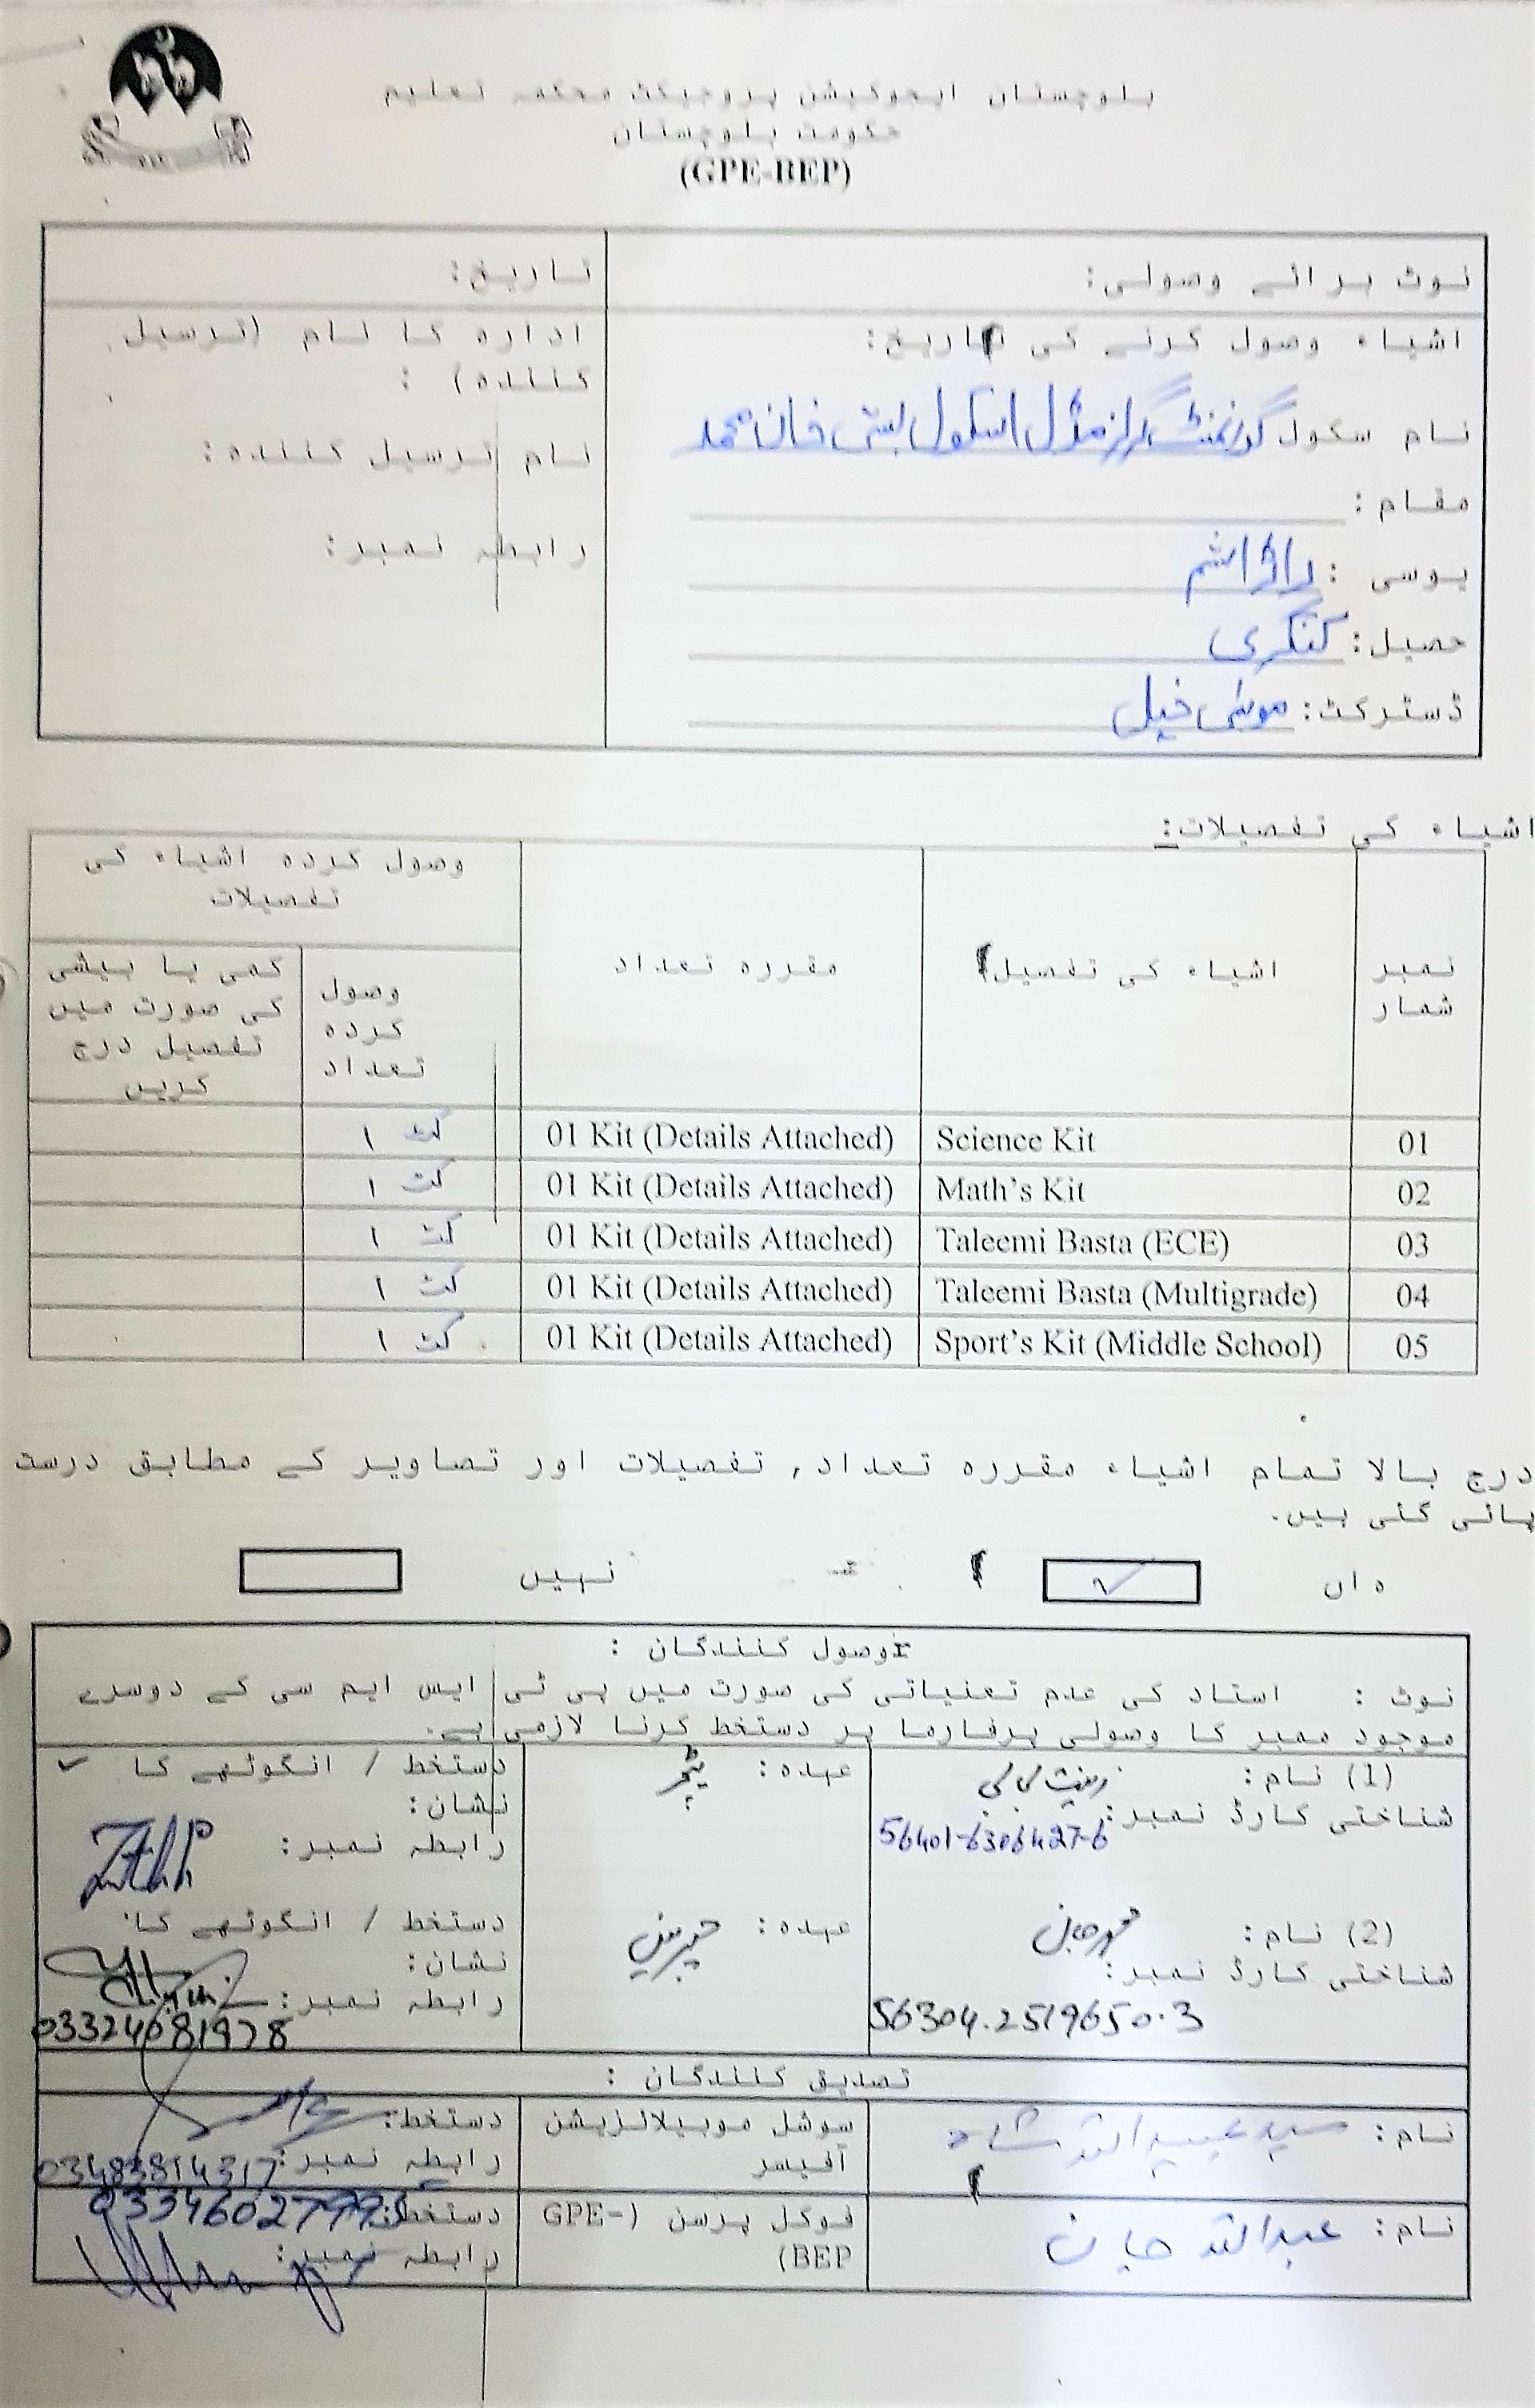 بلوچستان ایجوکیشن پروجیکٹ محکمہ تعلیم
حکومت بلوچستان
(GPE-BEP)
نوٹ برائے وصولی:
تاریخ:
اشیاء وصول کرنے کی تاریخ:
ادارہ کا نام (ترسیل کنندہ) :
نام سکول گورنمنٹ گرلز مڈل اسکول بستی خان محمد
نام ترسیل کنندہ:
مقام :
رابطہ نمبر:
یوسی :
حصیل: کنگری
ڈسٹرکٹ: موسیٰ خیل
اشیاء کی تفصیلات:
نمبر شمار
اشیاء کی تفصیل
مقررہ تعداد
وصول کردہ اشیاء کی تفصیلات
وصول کردہ تعداد
کمی یا بیشی کی صورت میں تفصیل درج کریں
01 Science Kit 01 Kit (Details Attached) کٹ ۱
02 Math's Kit 01 Kit (Details Attached) کٹ ۱
03 Taleemi Basta (ECE) 01 Kit (Details Attached) کٹ ۱
04 Taleemi Basta (Multigrade) 01 Kit (Details Attached) کٹ ۱
05 Sport's Kit (Middle School) 01 Kit (Details Attached) کٹ ۱
درج بالا تمام اشیاء مقررہ تعداد, تفصیلات اور تصاویر کے مطابق درست
پائی گئی ہیں.
ہاں ✓ نہیں
وصول کنندگان :
نوٹ : استاد کی عدم تعنیاتی کی صورت میں پی ٹی ایس ایم سی کے دوسرے
موجود ممبر کا وصولی پرفارما پر دستخط کرنا لازمی ہے.
(1) نام: زینت بی بی
عہدہ: ٹیچر
دستخط / انگوٹھے کا نشان:
شناختی کارڈ نمبر: 56401-6306427-6
رابطہ نمبر:
(2) نام: محمد جان
عہدہ: چیرمین
دستخط / انگوٹھے کا نشان:
شناختی کارڈ نمبر:
56304.2519650.3
رابطہ نمبر:
03324081978
تصدیق کنندگان :
نام: سید عبیداللہ شاہ
سوشل موبیلائزیشن آفیسر
دستخط:
رابطہ نمبر: 03483814317
نام: عبداللہ جان
فوکل پرسن (GPE-BEP)
دستخط:
رابطہ نمبر: